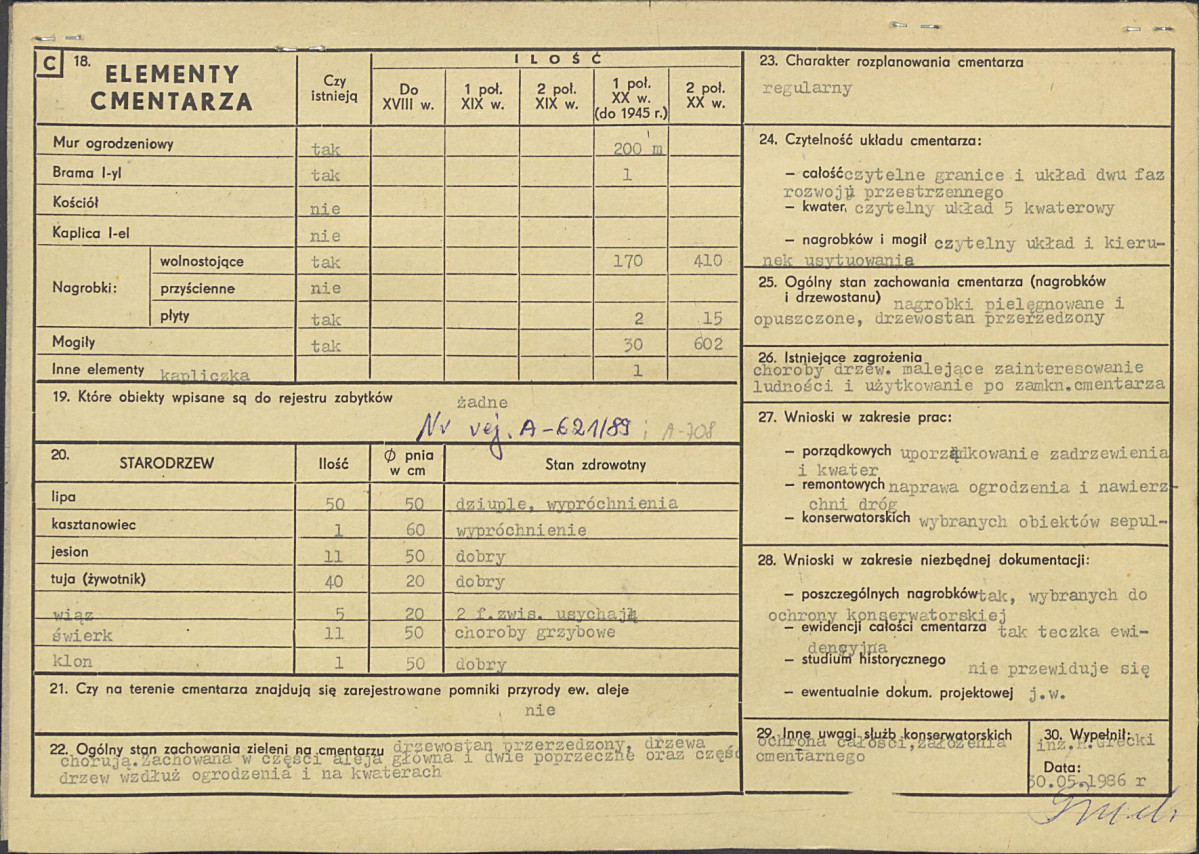 C 18. ELEMENTY CMENTARZA
Czy istnieją
ILOŚĆ
Do XVIII w.
1 poł. XIX w.
2 poł. XIX w.
1 poł. XX w. (do 1945 r.)
2 poł. XX w.
Mur ogrodzeniowy tak 200 m
Brama I-yl tak 1
Kościół nie
Kaplica I-el nie
Nagrobki: wolnostojące tak 170 410
przyścienne nie
płyty tak 2 15
Mogiły tak 30 602
Inne elementy kapliczka 1
19. Które obiekty wpisane są do rejestru zabytków żadne
Nr rej. A-621/89 i A-708
20. STARODRZEW Ilość Ø pnia w cm Stan zdrowotny
lipa 50 50 dziuple, wypróchnienia
kasztanowiec 1 60 wypróchnienie
jesion 11 50 dobry
tuja (żywotnik) 40 20 dobry
wiąz 5 20 2 f.zwis. usychają
świerk 11 50 choroby grzybowe
klon 1 50 dobry
21. Czy na terenie cmentarza znajdują się zarejestrowane pomniki przyrody ew. aleje
nie
22. Ogólny stan zachowania zieleni na cmentarzu drzewostan przerzedzony, drzewa
chorują.Zachowana w części aleja główna i dwie poprzeczne oraz część
drzew wzdłuż ogrodzenia i na kwaterach
23. Charakter rozplanowania cmentarza
regularny
24. Czytelność układu cmentarza:
– całość czytelne granice i układ dwu faz
rozwoju przestrzennego
– kwater, czytelny układ 5 kwaterowy
– nagrobków i mogił czytelny układ i kieru-
nek usytuowania
25. Ogólny stan zachowania cmentarza (nagrobków
i drzewostanu) nagrobki pielęgnowane i
opuszczone, drzewostan przerzedzony
26. Istniejące zagrożenia
choroby drzew. malejące zainteresowanie
ludności i użytkowanie po zamkn.cmentarza
27. Wnioski w zakresie prac:
– porządkowych uporządkowanie zadrzewienia
i kwater
– remontowych naprawa ogrodzenia i nawierz-
chni dróg
– konserwatorskich wybranych obiektów sepul-
28. Wnioski w zakresie niezbędnej dokumentacji:
– poszczególnych nagrobków tak, wybranych do
ochrony konserwatorskiej
– ewidencji całości cmentarza tak teczka ewi-
dencyjna
– studium historycznego nie przewiduje się
– ewentualnie dokum. projektowej j.w.
29. Inne uwagi służb konserwatorskich
ochrona całości,założenia
cmentarnego
30. Wypełnił:
inż.
Data:
30.05.1986 r